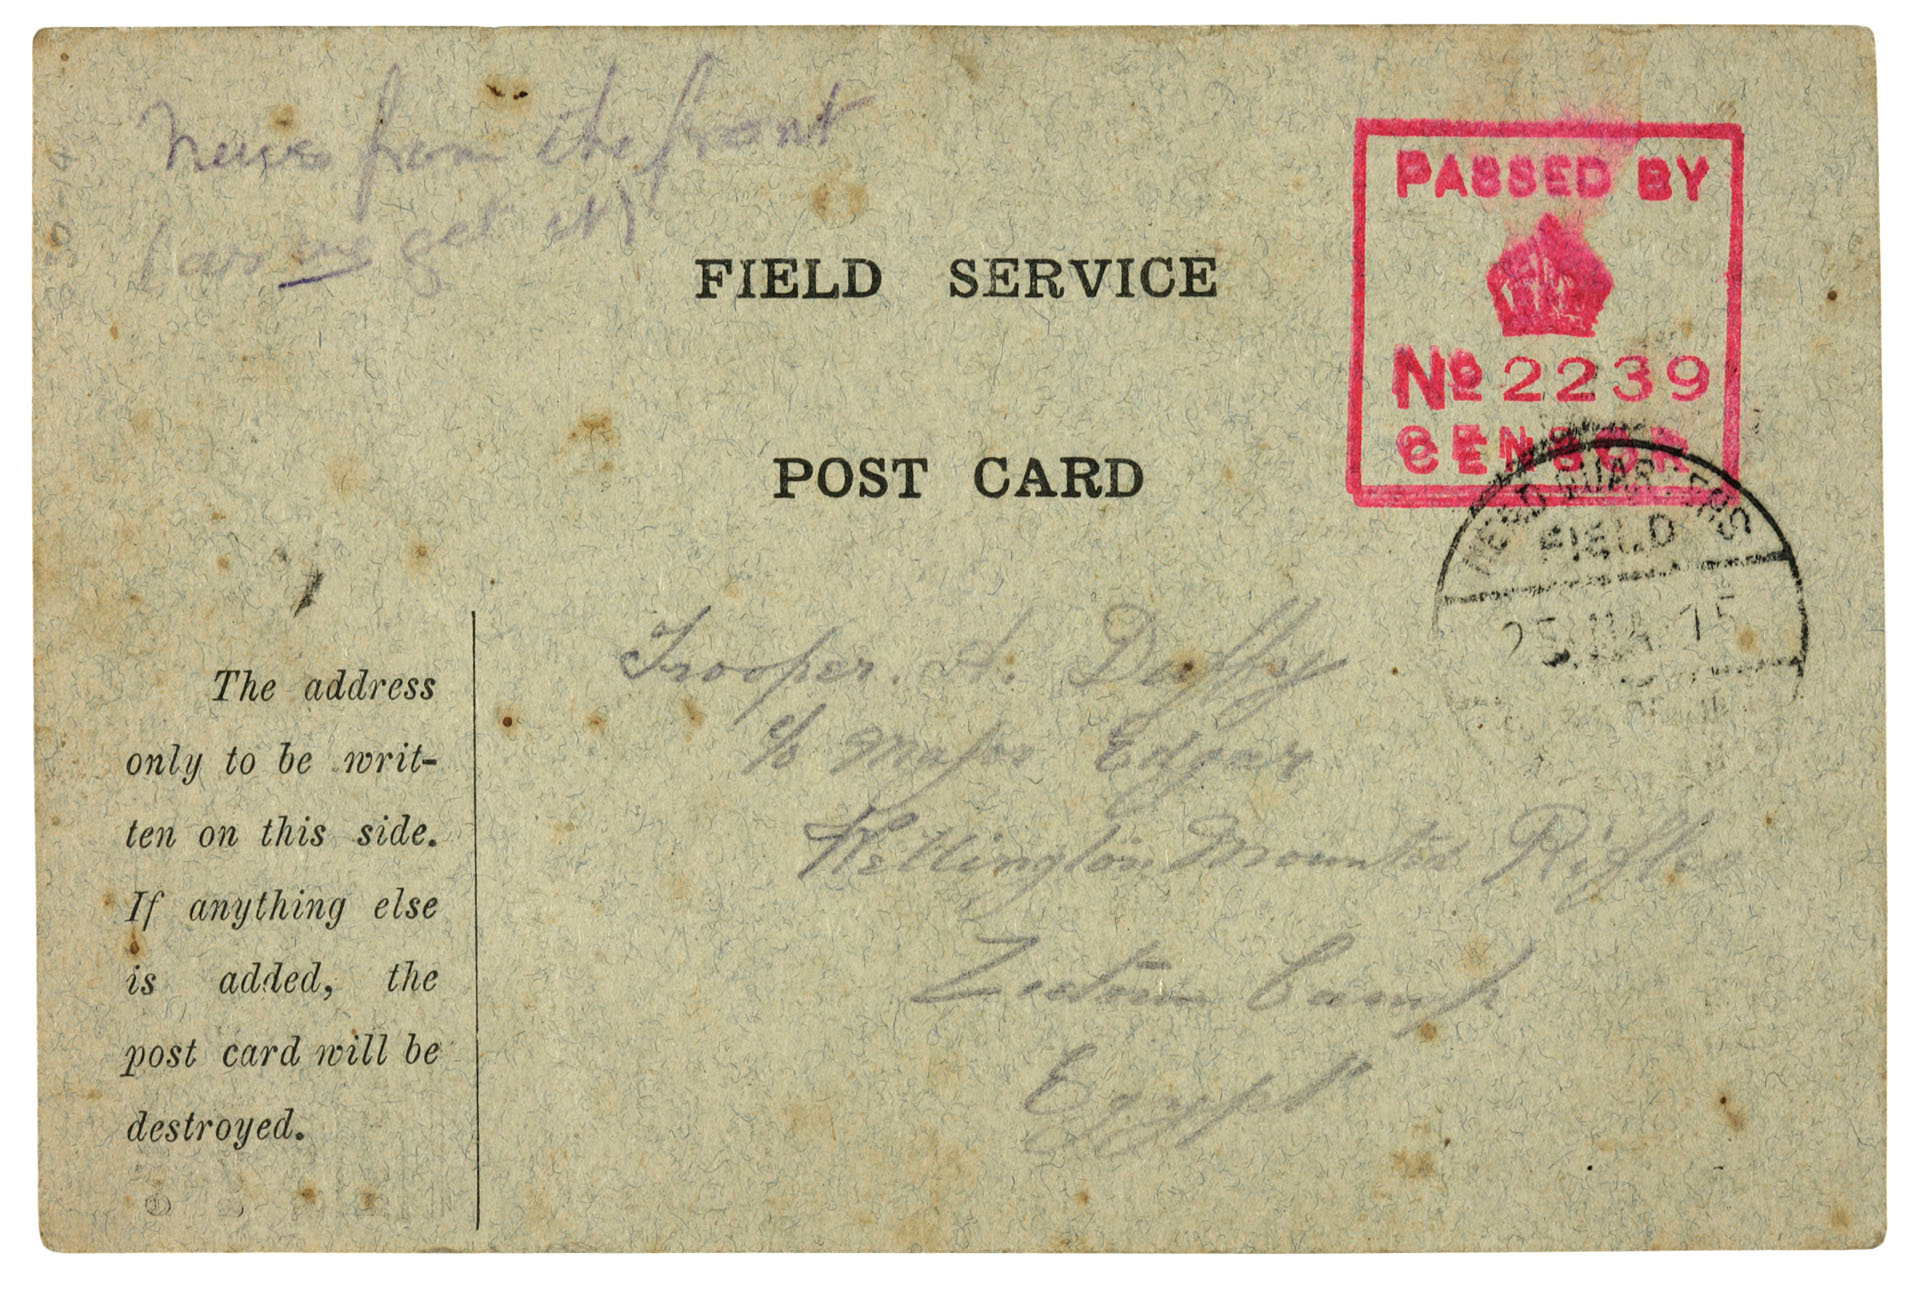 News from the front
(as we get it)
FIELD SERVICE
POST CARD
PASSED BY
No 2239
CENSOR
HEAD QUARTERS
FIELD
The address
only to be writ-
ten on this side.
If anything else
is added, the
post card will be
destroyed.
Trooper. A. Duffy
c/o Major Edgar
Wellington Mounted Rifles
Zeitoun Camp
Egypt